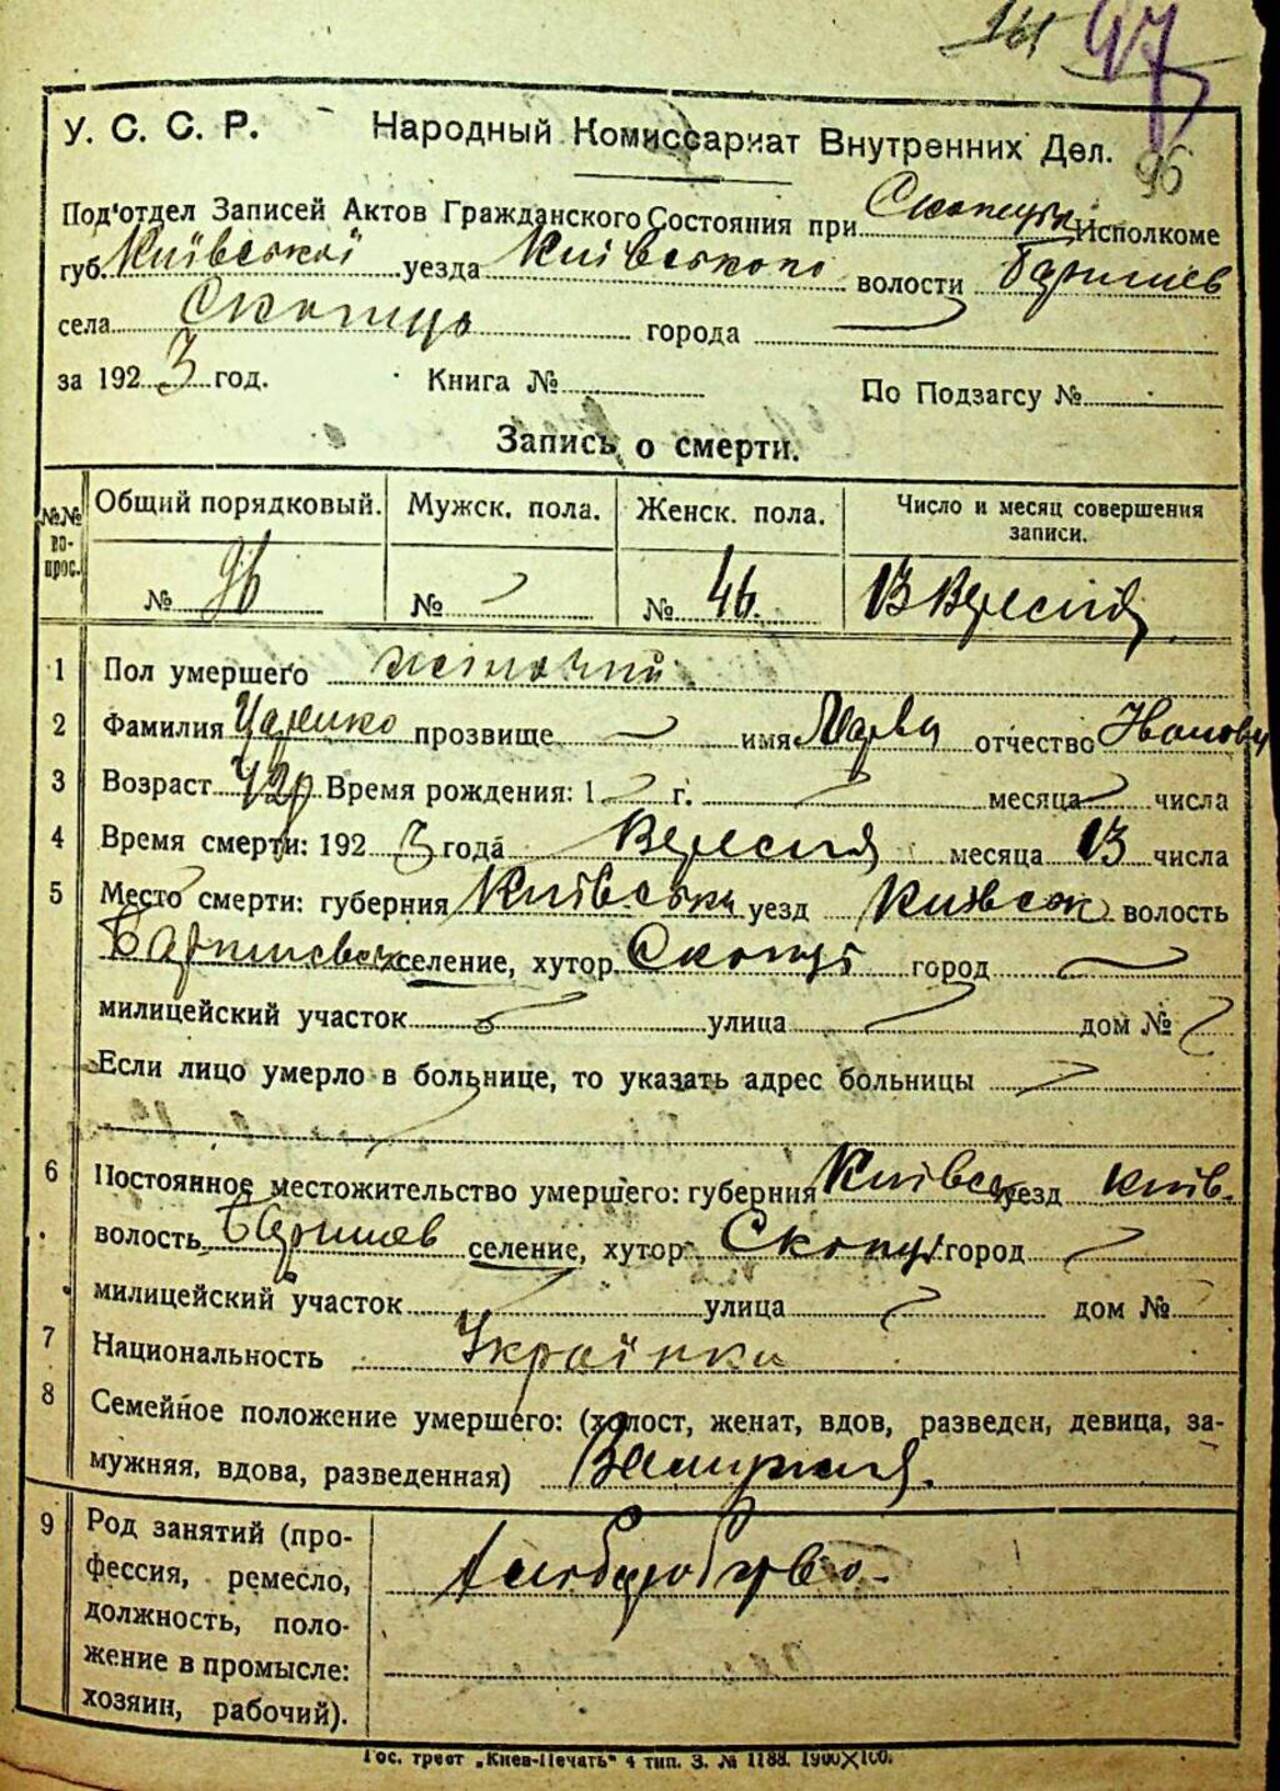 161 47
У. С. С. Р. Народный Комиссариат Внутренних Дел.
96
Под'отдел Записей Актов Гражданского Состояния при Исполкоме
губ. Київської уезда Київського волости Баришев
села Скопці города
за 1923 год. Книга № По Подзагсу №
Запись о смерти.
№№ вопрос. Общий порядковый. Мужск. пола. Женск. пола. Число и месяц совершения записи.
№ 96 № № 46. 13 Вересня
1 Пол умершего жіночий
2 Фамилия прозвище имя отчество
3 Возраст 42р Время рождения: 1 г. месяца числа
4 Время смерти: 1923 года Вересня месяца 13 числа
5 Место смерти: губерния Київська уезд Київськ волость
Баришевськ селение, хутор Скопці город
милицейский участок улица дом №
Если лицо умерло в больнице, то указать адрес больницы
6 Постоянное местожительство умершего: губерния Київськ уезд Київ.
волость Баришев селение, хутор Скопці город
милицейский участок улица дом №
7 Национальность Українка
8 Семейное положение умершего: (холост, женат, вдов, разведен, девица, за-
мужняя, вдова, разведенная)
9 Род занятий (про-
фессия, ремесло, хліборобство.
должность, поло-
жение в промысле:
хозяин, рабочий).
Гос. трест „Киев-Печать" 4 тип. З. № 1188. 1900×100.